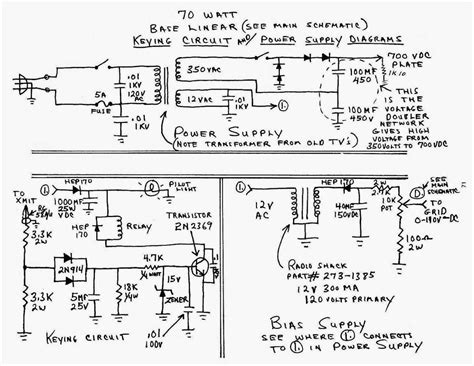 70 WATT
BASE LINEAR (SEE MAIN SCHEMATIC)
KEYING CIRCUIT AND/OR POWER SUPPLY DIAGRAMS
700 VDC
PLATE
350VAC
100MF
450
1K10
.01
1KV
120V
AC
5A
FUSE
12VAC
.01
1KV
.01
1KV
100MF
450V
THIS
IS THE
VOLTAGE
DOUBLER
NETWORK
GIVES HIGH
VOLTAGE FROM
350VOLTS TO 700VDC
POWER SUPPLY
(NOTE TRANSFORMER FROM OLD TV'S)
HEP170
PILOT
LIGHT
TO
XMIT
1000MF
25W
VDC
HEP
170
RELAY
TRANSISTOR
2N2369
3.3K
2W
2N914
4.7K
1/4WATT
15V
ZENER
3.3K
2W
5MF
25V
18K
1/4W
.01
100V
KEYING CIRCUIT
HEP170
2W
2.7K
10K
POT
SEE
MAIN
SCHEMATIC
TO
GRID
0-140V DC
12V
AC
40MF
150VDC
100Ω
2W
RADIO SHACK
PART# 273-1385
12V 300MA
120VOLTS PRIMARY
BIAS SUPPLY
SEE WHERE 1. CONNECTS
TO 1. IN POWER SUPPLY